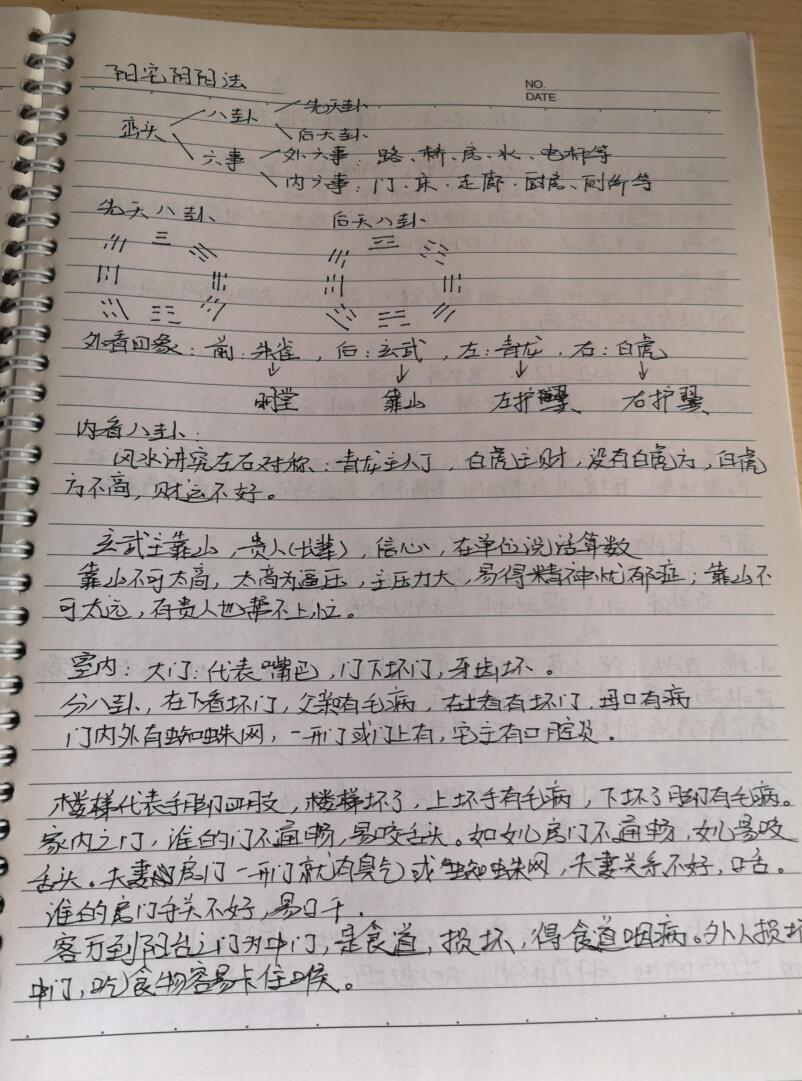 阳宅阴阳法
NO.
DATE
八卦 先天卦
峦头 后天卦
六事 外六事：路、桥、房、水、电杆等
内六事：门．床．走廊．厨房、厕所等
先天八卦 后天八卦
外看四象：前：朱雀，后：玄武，左：青龙．右：白虎
明堂 靠山 左护翼 右护翼
内看八卦：
风水讲究左右对称：青龙主人丁，白虎主财，没有白虎方，白虎
方不高，财运不好。
玄武主靠山，贵人（长辈），信心，在单位说话算数
靠山不可太高，太高为逼压，主压力大，易得精神忧郁症；靠山不
可太远，有贵人也帮不上忙。
室内：大门：代表嘴巴，门下坏门，牙齿坏。
分八卦，在下看坏门，父亲有毛病，在上看有坏门，母口有病
门内外有蜘蛛网，一开门或门上有，宅主有口腔炎．
楼梯代表手脚四肢，楼梯坏了，上坏手有毛病，下坏了脚有毛病。
家内之门，谁的门不通畅，易咬舌头。如女儿房门不通畅，女儿易咬
舌头。夫妻的房门一开门就有臭气或蜘蛛网，夫妻关系不好，口舌。
谁的房门开关不好，易口干．
客厅到阳台之门为中门，是食道，损坏，得食道咽病。外人损坏
中门，吃食物容易卡住喉。